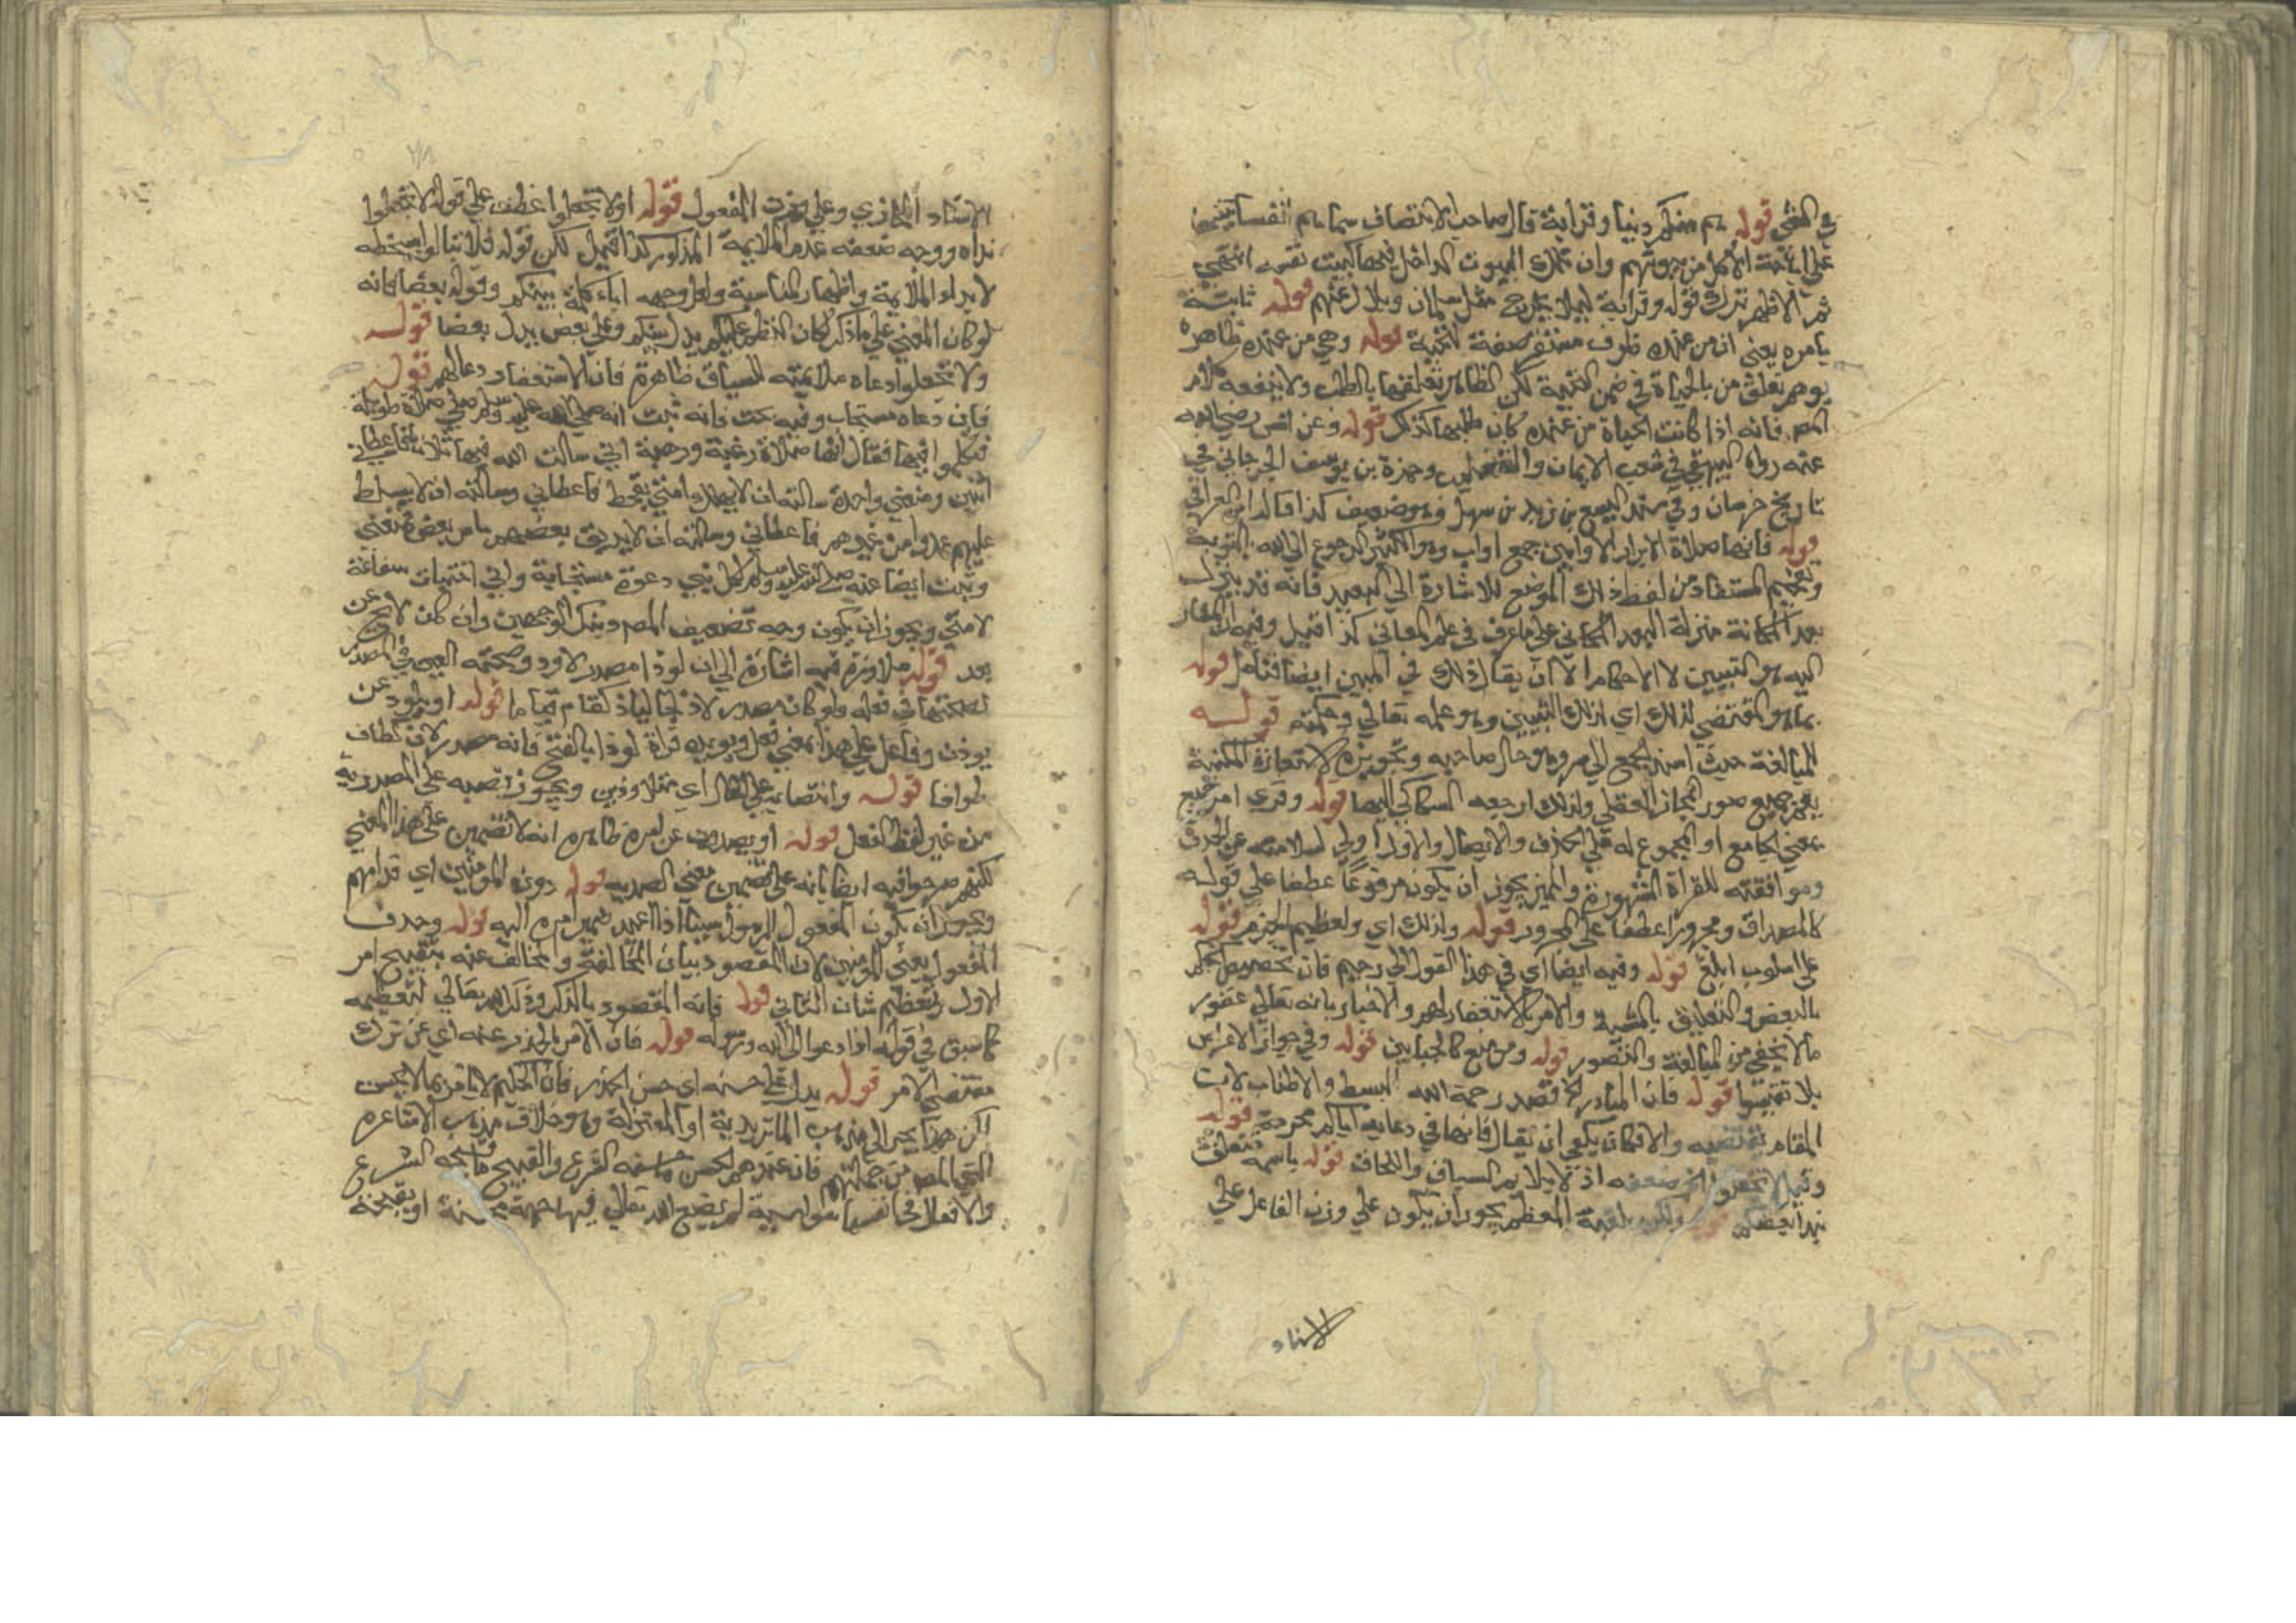 في العشي قوله هم منكم دينا وقرابة قال صاحب الانتصاف سماهم انفسا
علي اباحة الاكل من بيوتهم وان تلك البيوت الداخل فيها كبيت نفسه انتهي
ثم الاظهر ترك قوله وقرابة ليلا يخرج مثل سلمان وبلال عنهم قوله ثابتة
بامره يعني ان من عنده ظرف مستقر صفة لتحية قوله وهي من عنده ظاهره
يوهم تعلق من بالحياة في ضمن التحية لكن الظاهر تعلقها بالطلب ولا ينفعه كلام
المص فانه اذا كانت الحياة من عنده كان طلبها كذلك قوله وعن انس رضي الله
عنه رواه البيهقي في شعب الايمان والثعلبي وحمزة بن يوسف الجرجاني في
تاريخ جرجان وفي سنده اليسع بن زيد بن سهل وهو ضعيف كذا قاله ابن العراقي
قوله فانها صلاة الابرار الاوابين جمع اواب وهو الكثير الرجوع الي الله بالتوبة
وتفخيم المستفاد من لفظ ذلك الموضع للاشارة الي البعيد فانه قد ينزل
بعد المكانة منزلة البعد المكاني علي ما عرف في علم المعاني كذا قيل وفيه ان المشار
اليه هو التبيين لا الاحكام الا ان يقال ذلك في المبين ايضا فتامل قوله
بما هو المقتضي لذلك اي لذلك التبيين وهو علمه تعالي وحكمته قوله
للمبالغة حيث اسند الجمع الي امر وهو حال صاحبه وتجويزه الاستعارة المكنية
يعم جميع صور المجاز العقلي ولذلك ارجعه السكاكي اليها قوله وقري امر جميع
بمعني الجامع او المجموع له علي الحذف والايصال والاول اولي لسلامته عن الحذف
وموافقته للقراة المشهورة والمميز يجوز ان يكون مرفوعا عطفا علي قوله
كالمصداق ومجرورا عطفا علي المجرور قوله ولذلك اي ولعظيم الجرم قوله
علي اسلوب ابلغ قوله وفيه ايضا اي في هذا القول الي رحيم فان تخصيص الحكم
بالبعض والتعليق بالمشية والامر بالاستغفار لهم والاخبار بانه تعالي غفور
ما لا يخفي من المبالغة والتصوير قوله ومن منع كالجبايين قوله وفي جواز الاعراض
بلا تفتيتها قوله فان المبادر الخ قصد رحمه الله البسط والاطناب لان
المقام يقتضيه والا فكان يكفي ان يقال فانها في دعايه اياكم محرمة قوله
وقيل لا تجعلوا الخ ضعفه اذ لا يلايم السياق واللحاق قوله باسمه متعلق
بنداء بعضكم قوله ولكن بلقبه المعظم يجوز ان يكون علي وزن الفاعل علي
الاسناد
الاسناد المجازي وعلي وزن المفعول قوله او لا تجعلوا عطف علي قوله لا تجعلوا
نداه ووجه ضعفه عدم الملايمة المذكور كذا قيل لكن قوله فلا تبالوا بسخطه
لابداء الملايمة واظهار المناسبة ولعل وجهه اباء كلمة بينكم وقوله بعضا فانه
لو كان المعني علي ما ذكر لكان النظم عليكم بدل بينكم وعلي بعض بدل بعضا قوله
ولا تجعلوا دعاه ملايمته للسياق ظاهرة فان الاستغفار دعا لهم قوله
فان دعاه مستجاب وفيه بحث فانه ثبت انه صلي الله عليه وسلم صلي صلاة طويلة
فتكلموا فيها فقال انها صلاة رغبة ورهبة اني سالت الله فيها ثلاثا فاعطاني
اثنين ومنعني واحدة سالته ان لا يهلك امتي بقحط فاعطاني وسالته ان لا يسلط
عليهم عدوا من غيرهم فاعطاني وسالته ان لا يذيق بعضهم باس بعض فمنعني
وثبت ايضا عنه صلي الله عليه وسلم لكل نبي دعوة مستجابة واني اختبات شفاعة
لامتي ويجوز ان يكون وجه تضعيف المص دينك الوجهين وان كان لا يخ عن
بعد قوله ملاوذة فيه اشارة الي ان لوذا مصدر لاوذ وصحته العين في المصدر
لصحتها في فعله ولو كان مصدر لاذ لجا لياذ كقام قياما قوله او يلوذ عن
يوذن وفاعل علي هذا بمعني فعل ويويده قراة لوذا بالفتح فانه مصدر لاذ كطاف
طوافا قوله وانتصابه علي الحال اي متلاوذين ويجوز نصبه علي المصدرية
من غير لفظ الفعل قوله او يصدون عن امره ظاهره انه لا تضمين علي هذا المعني
لكنهم صرحوا فيه ايضا بانه علي تضمين معني الصد قوله دون المومنين اي قدامهم
ويجوز ان يكون المفعول الرسول سيما اذا اعيد ضمير امره اليه قوله وحذف
المفعول يعني المومنين لان المقصود بيان المخالفة والمخالف عنه بتقبيح امر
الاول وتعظيم شان الثاني قوله فانه المقصود بالذكر وذكر الله تعالي لتعظيمه
كما سبق في قوله اذا دعوا الي الله ورسوله قوله فان الامر بالحذر عنه اي عن ترك
مقتضي الامر قوله يدل علي حسنه اي حسن الحذر فان الحكيم لا يامر بما لا يحسن
لكن هذا يجر الي مذهب الماتريدية او المعتزلة وهو خلاف مذهب الاشاعره
التي المص من جملتهم فان عندهم الحسن ما حسنه الشرع والقبيح ما قبحه الشرع
والافعال في انفسها سواسية لم يضع الله تعالي فيها جهة محسنة او مقبحة